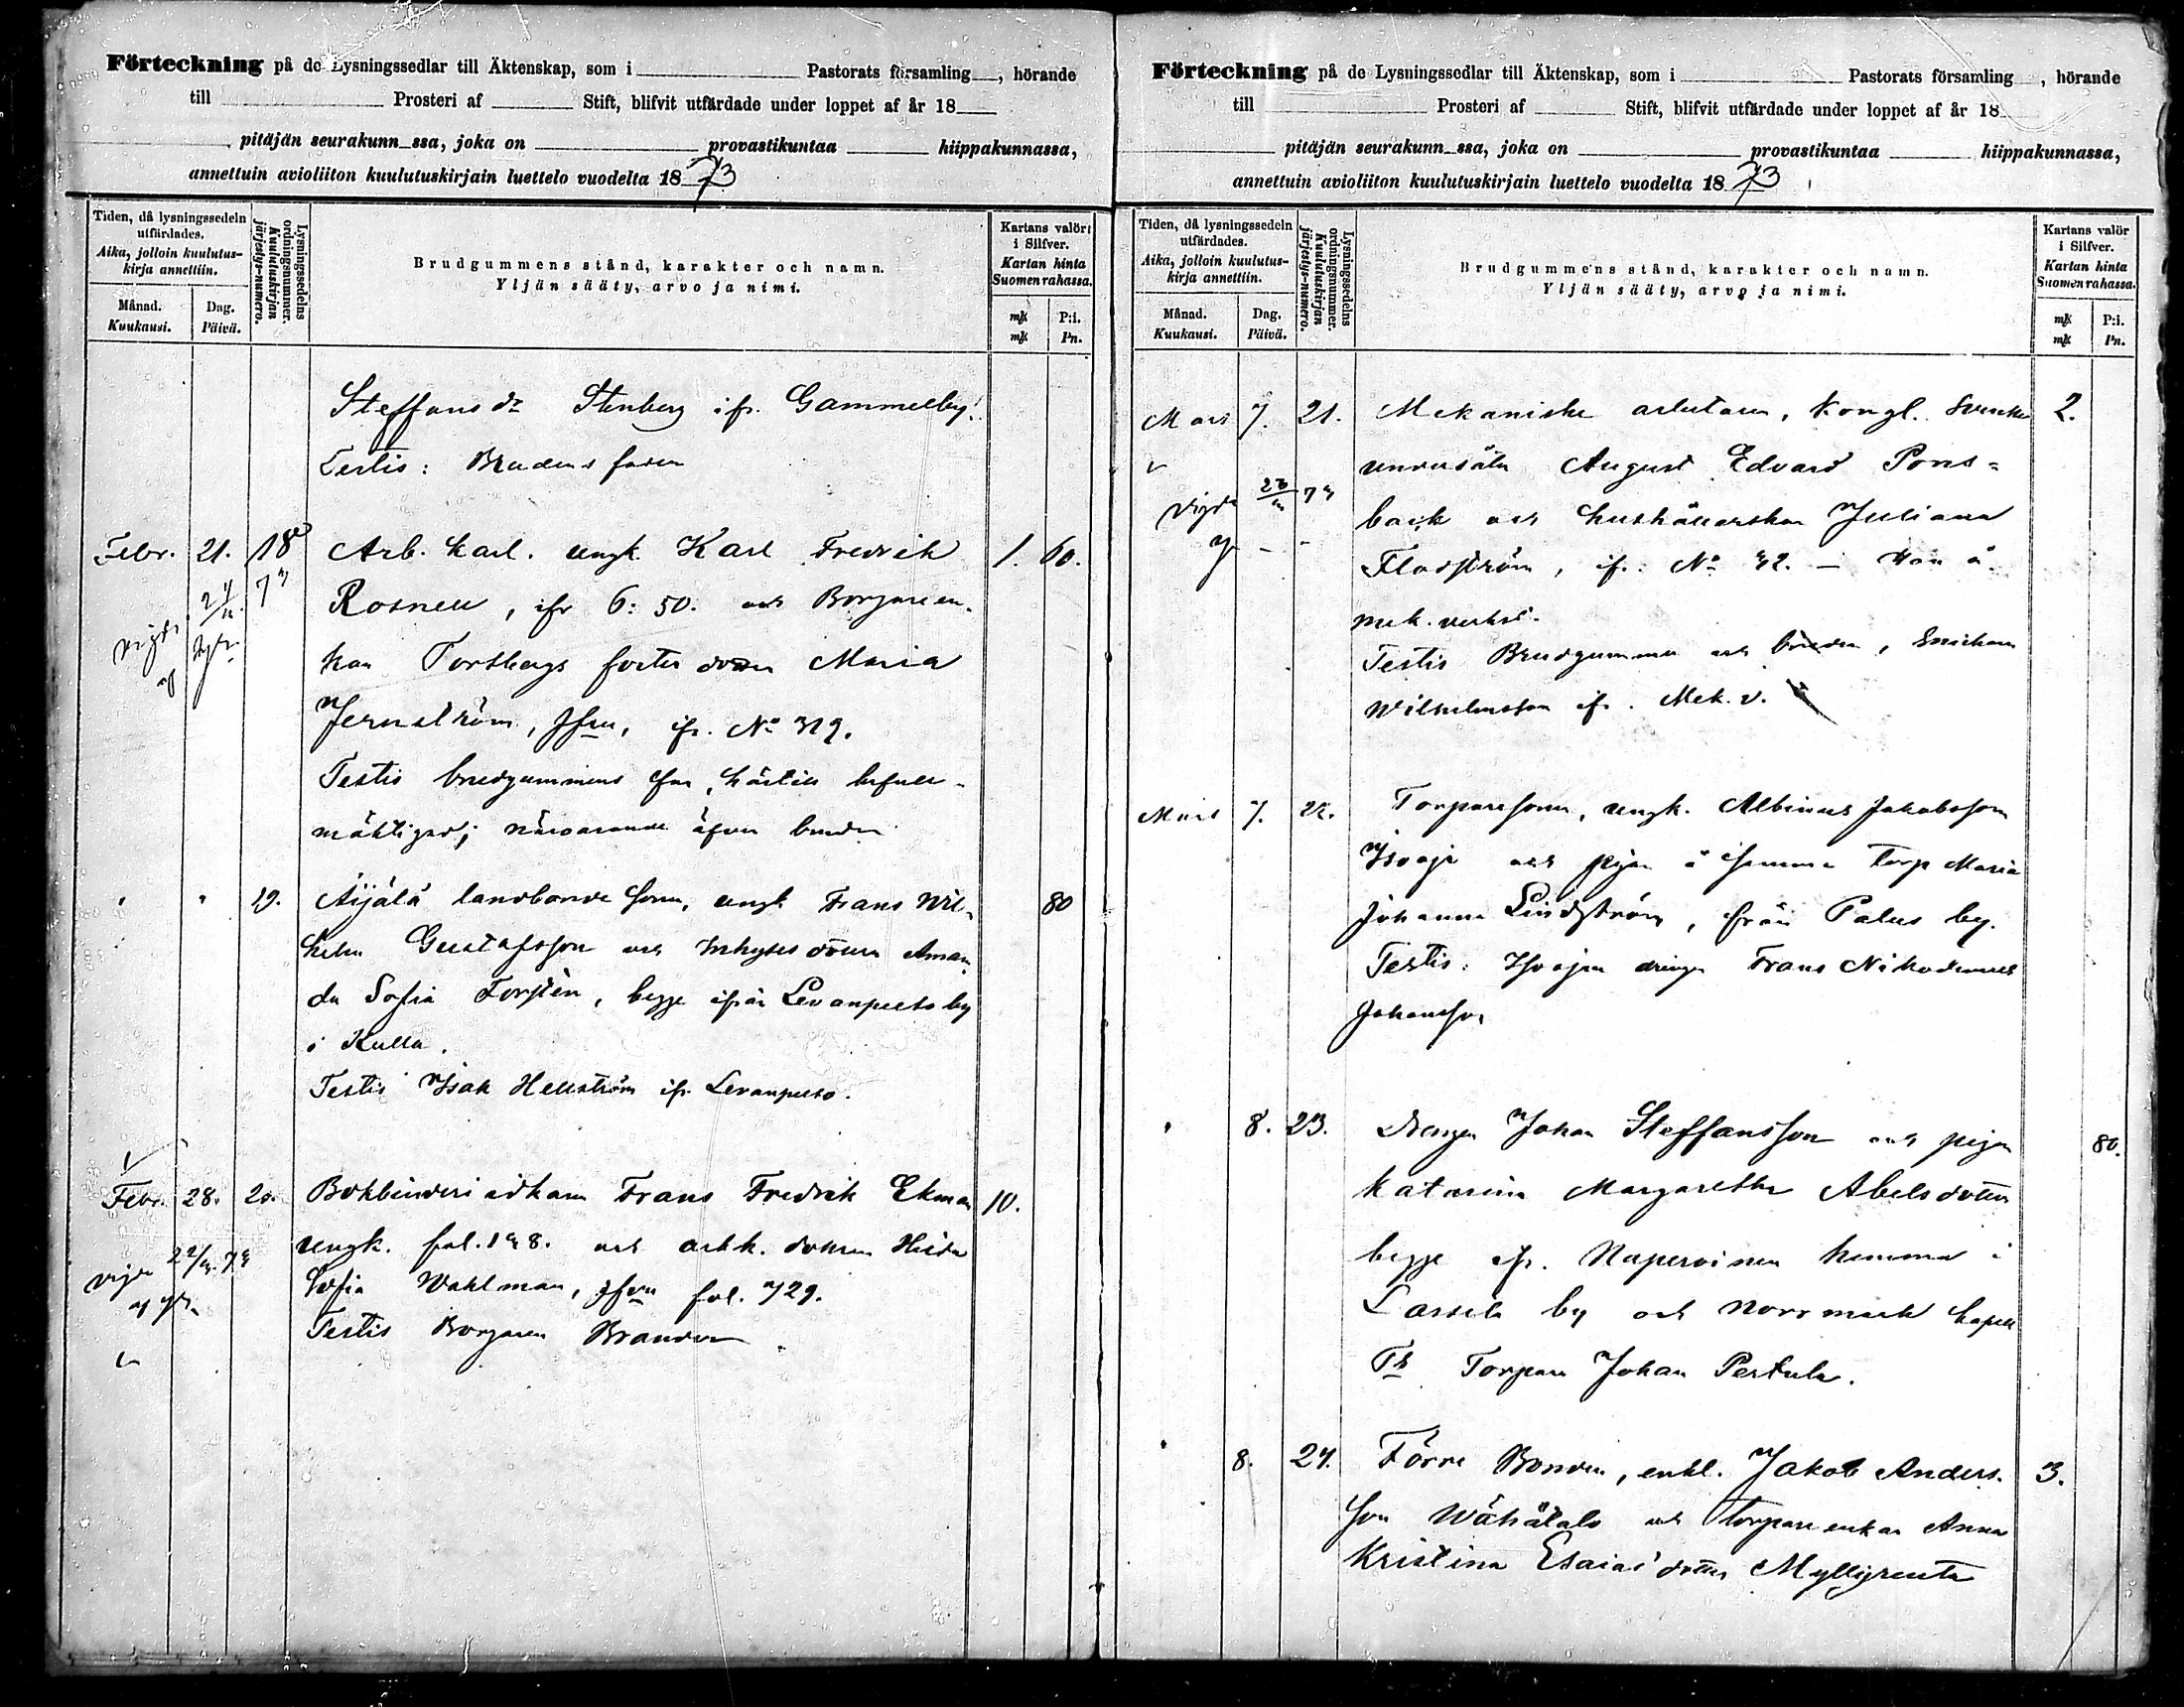 Förteckning på de Lysningssedlar till Äktenskap, som i Pastorats församling, hörande
till Prosteri af Stift, blifvit utfärdade under loppet af år 18
pitäjän seurakunn ssa, joka on provastikuntaa hiippakunnassa,
annettuin avioliiton kuulutuskirjain luettelo vuodelta 1873
Tiden, då lysningssedeln utfärdades.
Aika, jolloin kuulutus-kirja annettiin.
Månad. Kuukausi.
Dag. Päivä.
Lysningssedelns ordningsnummer.
Kuulutuskirjan järjestys-numero.
Brudgummens stånd, karakter och namn.
Yljän sääty, arvo ja nimi.
Kartans valör i Silfver.
Kartan hinta Suomen rahassa.
mk P:i.
mk Pn.
Steffansdr Stenberg ifr. Gammelby.
Testis: Brudens fader
Febr. 21. 18 Arb. karl. ungk. Karl Fredrik 1. 60.
Rosnell, ifr 6: 50. och Borgareen-
kan Forsbergs foster dotter Maria
Jernström, jfru, ifr. No 319.
Testis brudgummens far, härtill befull-
mäktigad; närvarande äfven bruden
19. Äijälä landbonde son, ungk Frans Wil- 80
helm Gustafsson och Inhyses dottern Aman
da Sofia Forstén, begge ifrån Levanpelto by
i Kulla.
Testis Isak Hellström ifr. Levanpelto.
Febr. 28. 20. Bokbinderi idkaren Frans Fredrik Ekman 10.
ungk. fol. 148. och arbk. dottern Hilda
Sofia Wahlman, jfru fol. 729.
Testis Borgaren Brander.
Förteckning på de Lysningssedlar till Äktenskap, som i Pastorats församling, hörande
till Prosteri af Stift, blifvit utfärdade under loppet af år 18
pitäjän seurakunn ssa, joka on provastikuntaa hiippakunnassa,
annettuin avioliiton kuulutuskirjain luettelo vuodelta 1873
Tiden, då lysningssedeln utfärdades.
Aika, jolloin kuulutus-kirja annettiin.
Månad. Kuukausi.
Dag. Päivä.
Lysningssedelns ordningsnummer.
Kuulutuskirjan järjestys-numero.
Brudgummens stånd, karakter och namn.
Yljän sääty, arvo ja nimi.
Kartans valör i Silfver.
Kartan hinta Suomen rahassa.
mk P:i.
mk Pn.
Mars 7. 21. Mekaniske arbetaren, Kongl. Svenske 2.
undersåten August Edvard Pons-
back och hushållerskan Juliana
Flodström, ifr. No 42. - Han å
mek. verkst.
Testis Brudgummen och bruden, Snickaren
Wilhelmsson ifr. Mek. v.
Mars 7. 22. Torparesonen, ungk. Albinus Jakobsson
Isooja och pigan å samma torp Maria
Johanna Lindström, från Palus by.
Testis: Isoojan drängen Frans Nikodemus
Johansson
8. 23. Drengen Johan Steffansson och pigan 80.
Katarina Margaretha Abelsdotter
begge ifr. Napervinen hemman i
Lassila by och Norrmark kapell
Ts Torparen Johan Pertula.
8. 24. Förre Bonden, enkl. Jakob Anders- 3.
son Wähätalo och Torpareenkan Anna
Kristina Esaiasdotter Myllyrenta